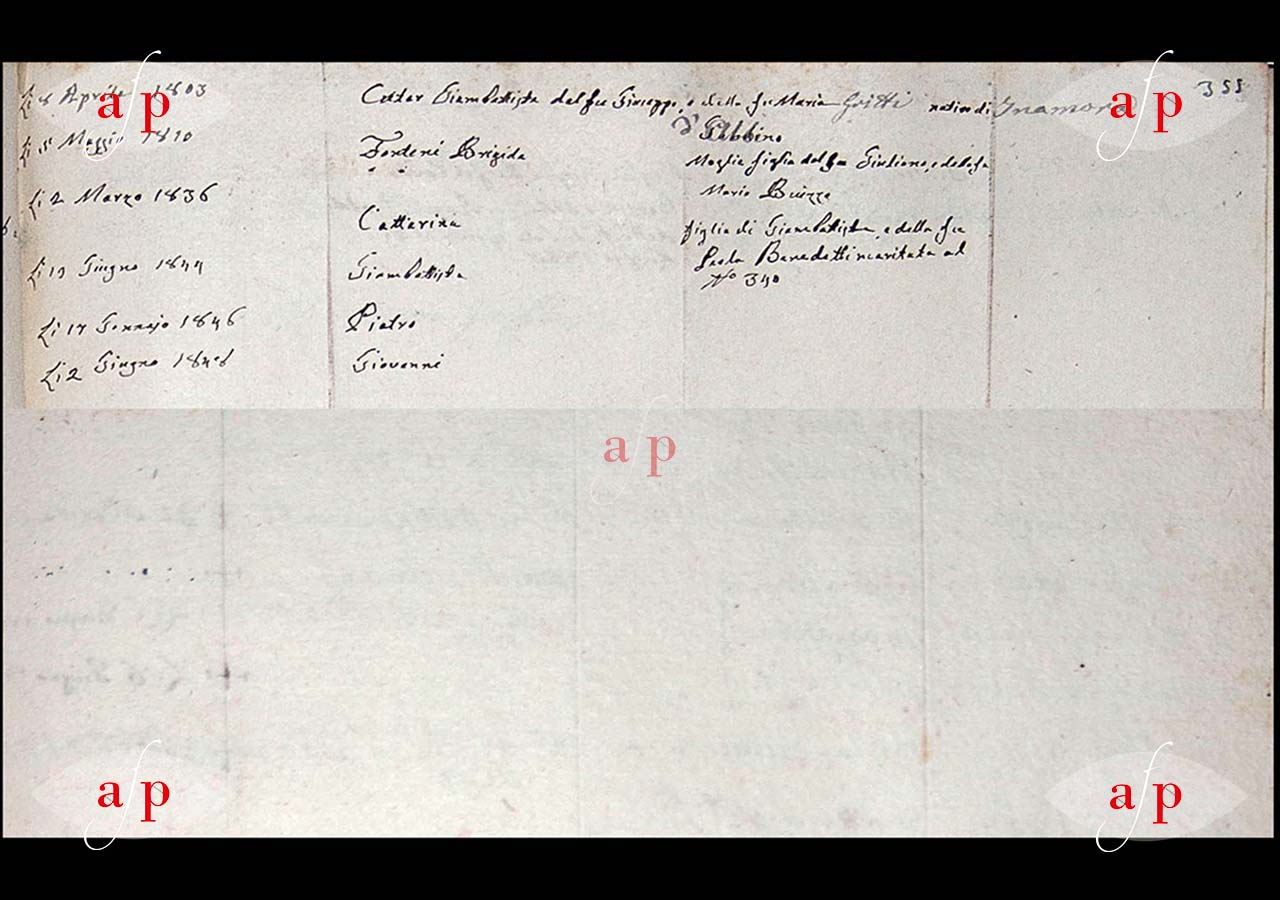 Li 8 Aprile 1803 Cattar Giambattista del fu Giuseppe, e della fu Maria Gritti nativo di 355
d' Gabbino
Maggio 1810 Forteni Brigida Moglie figlia del fu Giuliano, e della fu
Maria
Li 2 Marzo 1836 Cattarina figlia di Giambattista, e della fu
Paola Benedetti maritata al
N° 340
Li 19 Giugno 1844 Giambattista
Li 17 Gennajo 1846 Pietro
Li 2 Giugno 1848 Giovanni
afp
afp
afp
afp
afp